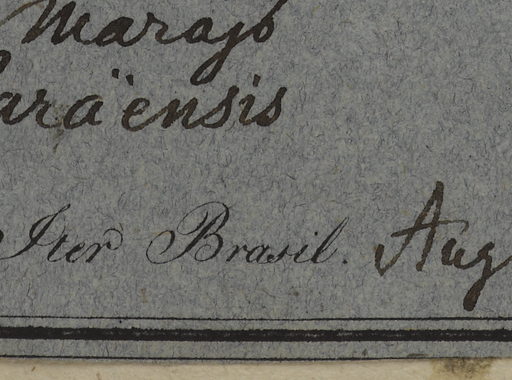 Marajó
araënsis
Iter Brasil. Aug